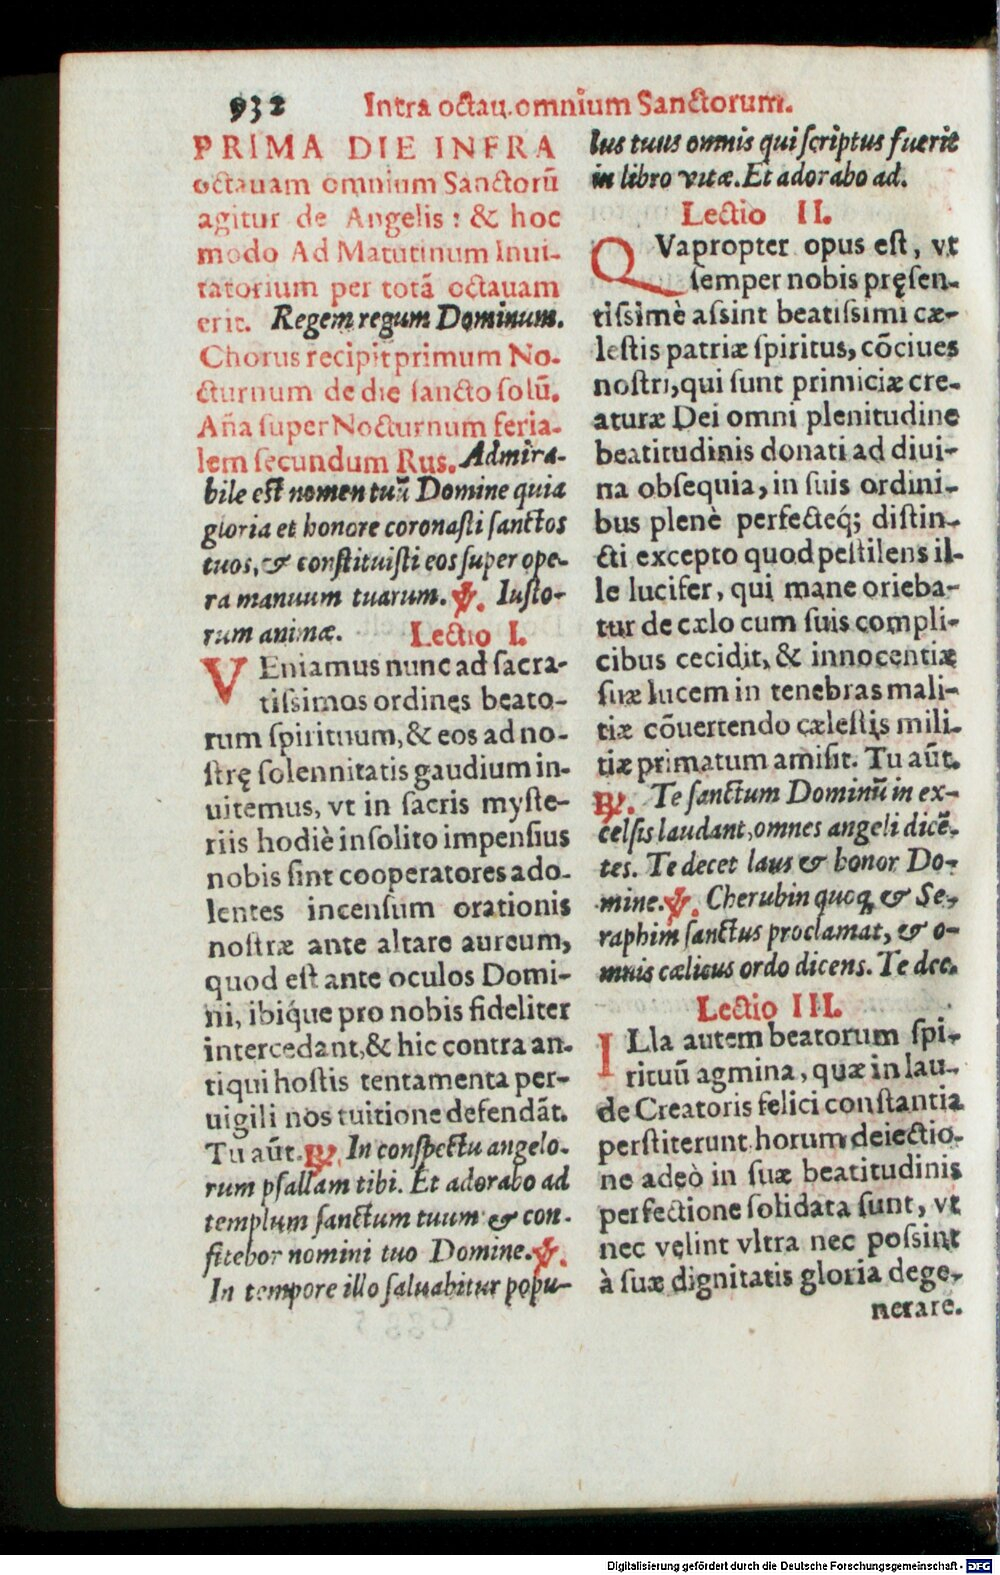 932 Intra octau. omnium Sanctorum.
PRIMA DIE INFRA
octauam omnium Sanctorū
agitur de Angelis: & hoc
modo Ad Matutinum Inui-
tatorium per totā octauam
erit. Regem regum Dominum.
Chorus recipit primum No-
cturnum de die sancto solū.
Aña super Nocturnum feria-
lem secundum Rus. Admira-
bile est nomen tuū Domine quia
gloria et honore coronasti sanctos
tuos, & constituisti eos super ope-
ra manuum tuarum. ℣. Iusto-
rum animæ. Lectio I.
VEniamus nunc ad sacra-
tissimos ordines beato-
rum spirituum, & eos ad no-
strę solennitatis gaudium in-
uitemus, vt in sacris myste-
riis hodiè insolito impensius
nobis sint cooperatores ado-
lentes incensum orationis
nostræ ante altare aureum,
quod est ante oculos Domi-
ni, ibiq́ue pro nobis fideliter
intercedant, & hic contra an-
tiqui hostis tentamenta per-
uigili nos tuitione defendāt.
Tu aūt. ℟. In conspectu angelo-
rum psallam tibi. Et adorabo ad
templum sanctum tuum & con-
fitebor nomini tuo Domine. ℣.
In tempore illo saluabitur popu-
lus tuus omnis qui scriptus fuerit
in libro vitæ. Et adorabo ad.
Lectio II.
QVapropter opus est, vt
semper nobis pręsen-
tissimè assint beatissimi cæ-
lestis patriæ spiritus, cōciues
nostri, qui sunt primiciæ cre-
aturæ Dei omni plenitudine
beatitudinis donati ad diui-
na obsequia, in suis ordini-
bus plenè perfecteq́; distin-
cti excepto quod pestilens il-
le lucifer, qui mane orieba-
tur de cælo cum suis compli-
cibus cecidit, & innocentiæ
suæ lucem in tenebras mali-
tiæ cōuertendo cælestis mili-
tiæ primatum amisit. Tu aūt.
℟. Te sanctum Dominū in ex-
celsis laudant, omnes angeli dicē-
tes. Te decet laus & honor Do-
mine. ℣. Cherubin quoq; & Se-
raphim sanctus proclamat, & o-
mnis cælicus ordo dicens. Te dec.
Lectio III.
ILla autem beatorum spi-
rituū agmina, quæ in lau-
de Creatoris felici constantia
perstiterunt horum deiectio-
ne adeò in suæ beatitudinis
perfectione solidata sunt, vt
nec velint vltra nec possint
à suæ dignitatis gloria dege-
nerare.
Digitalisierung gefördert durch die Deutsche Forschungsgemeinschaft - DFG